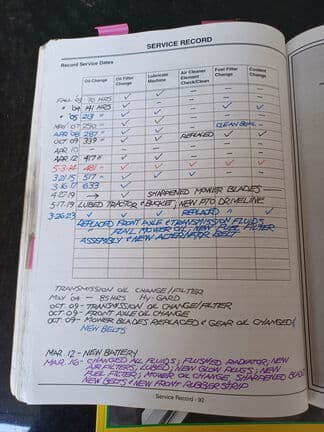 SERVICE RECORD
Record Service Dates
Oil Change Oil Filter Change Lubricate Machine Air Cleaner Element Check/Clean Fuel Filter Change Coolant Change
FALL 03 70 HRS ✓ — — —
" 04 141 HRS ✓ ✓ — ✓ ✓
" 05 213 " ✓ ✓ — — —
MAY 07 250 " ✓ ✓ — CLEAN BOWL —
APR 08 287 " ✓ ✓
OCT 09 339 " ✓ ✓ REPLACED ✓ ✓
APR 10 — — — — —
APR 12 417 " ✓ ✓ — — —
5-3-14 481 " ✓ ✓ — ✓ ✓
3/21/15 517 " ✓ ✓ — — —
3-16-17 633 ✓
4-27-19 → ✓ SHARPENED MOWER BLADES
5-17-19 LUBED TRACTOR & BUCKET; NEW PTO DRIVELINE
3-26-23 ✓ ✓ ✓ REPLACED ✓ ✓
REPLACED FRONT AXLE & TRANSMISSION FLUIDS
MOWER OIL; NEW FUEL FILTER
ASSEMBLY & NEW ALTERNATOR BELT
TRANSMISSION OIL CHANGE/FILTER
MAY 04 — 85 HRS HY-GARD
OCT 09 - TRANSMISSION OIL CHANGE/FILTER
OCT 09 - FRONT AXLE OIL CHANGE
OCT 09 - MOWER BLADES REPLACED & GEAR OIL CHANGED &
NEW BELTS
MAR. 12 - NEW BATTERY
MAR. 16 - CHANGED ALL FLUIDS; FLUSHED RADIATOR; NEW
AIR FILTERS; LUBED; NEW GLOW PLUGS; NEW
FUEL FILTER; MOWER OIL CHANGE, SHARPENED BLADES
NEW BELTS & NEW FRONT RUBBER STRIP
Service Record - 92